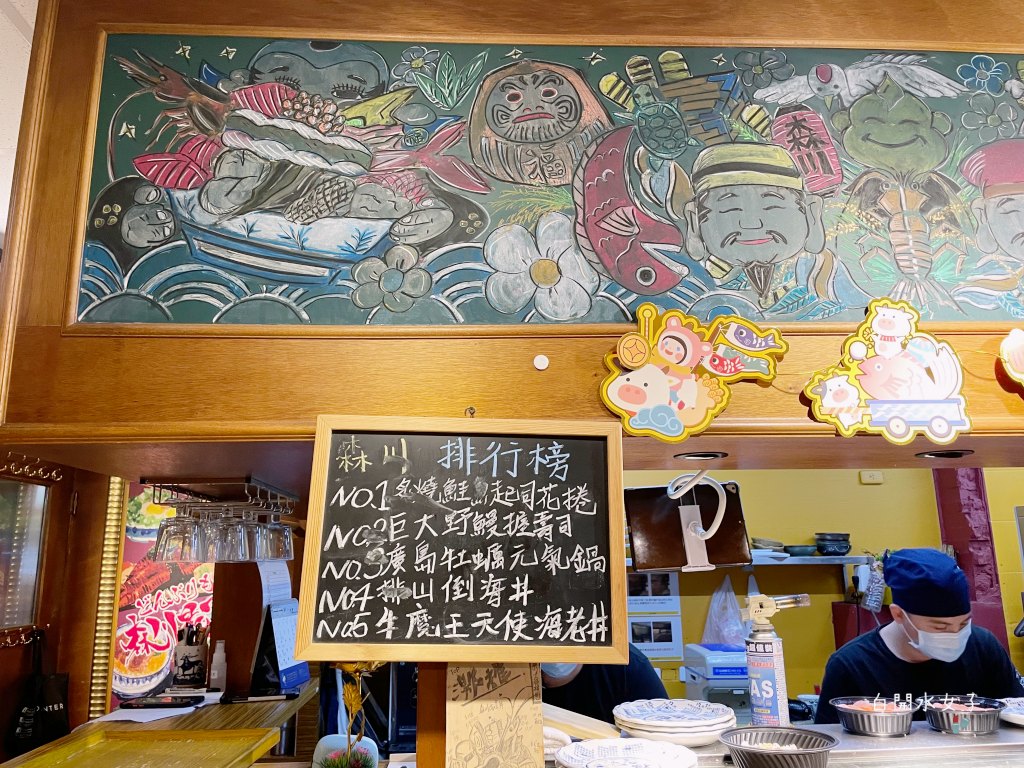 福
森川
森川 排行榜
NO.1 炙燒鮭魚起司花捲
NO.2 巨大野鰻握壽司
NO.3 廣島牡蠣元氣鍋
NO.4 排山倒海丼
NO.5 牛魔王天使海老丼
白開水女子